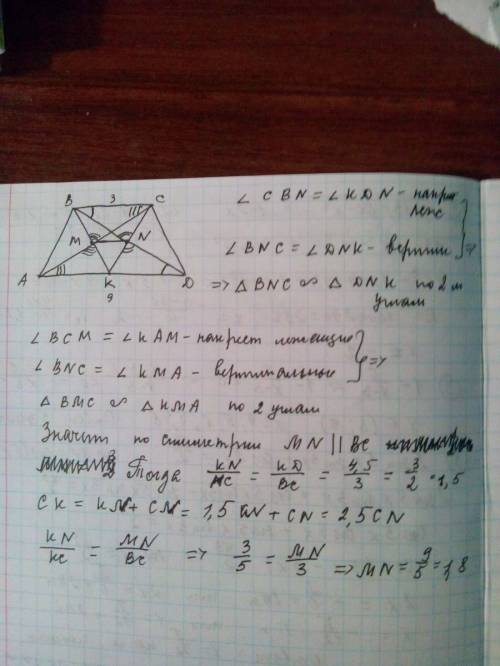 B 3 C
M N
A K D
9
∠ CBN = ∠ KDN - накрест леж
∠ BNC = ∠ DNK - вертик
=> △ BNC ∽ △ DNK по 2м
углам
∠ BCM = ∠ KAM - накрест лежащие
∠ BNC = ∠ KMA - вертикальные } =>
△ BMC ∽ △ KMA по 2 углам
Значит по симметрии MN || BC
Тогда KN/NC = KD/BC = 4,5/3 = 3/2 = 1,5
CK = KN + CN = 1,5 CN + CN = 2,5CN
KN/KC = MN/BC => 3/5 = MN/3 => MN = 9/5 = 1,8